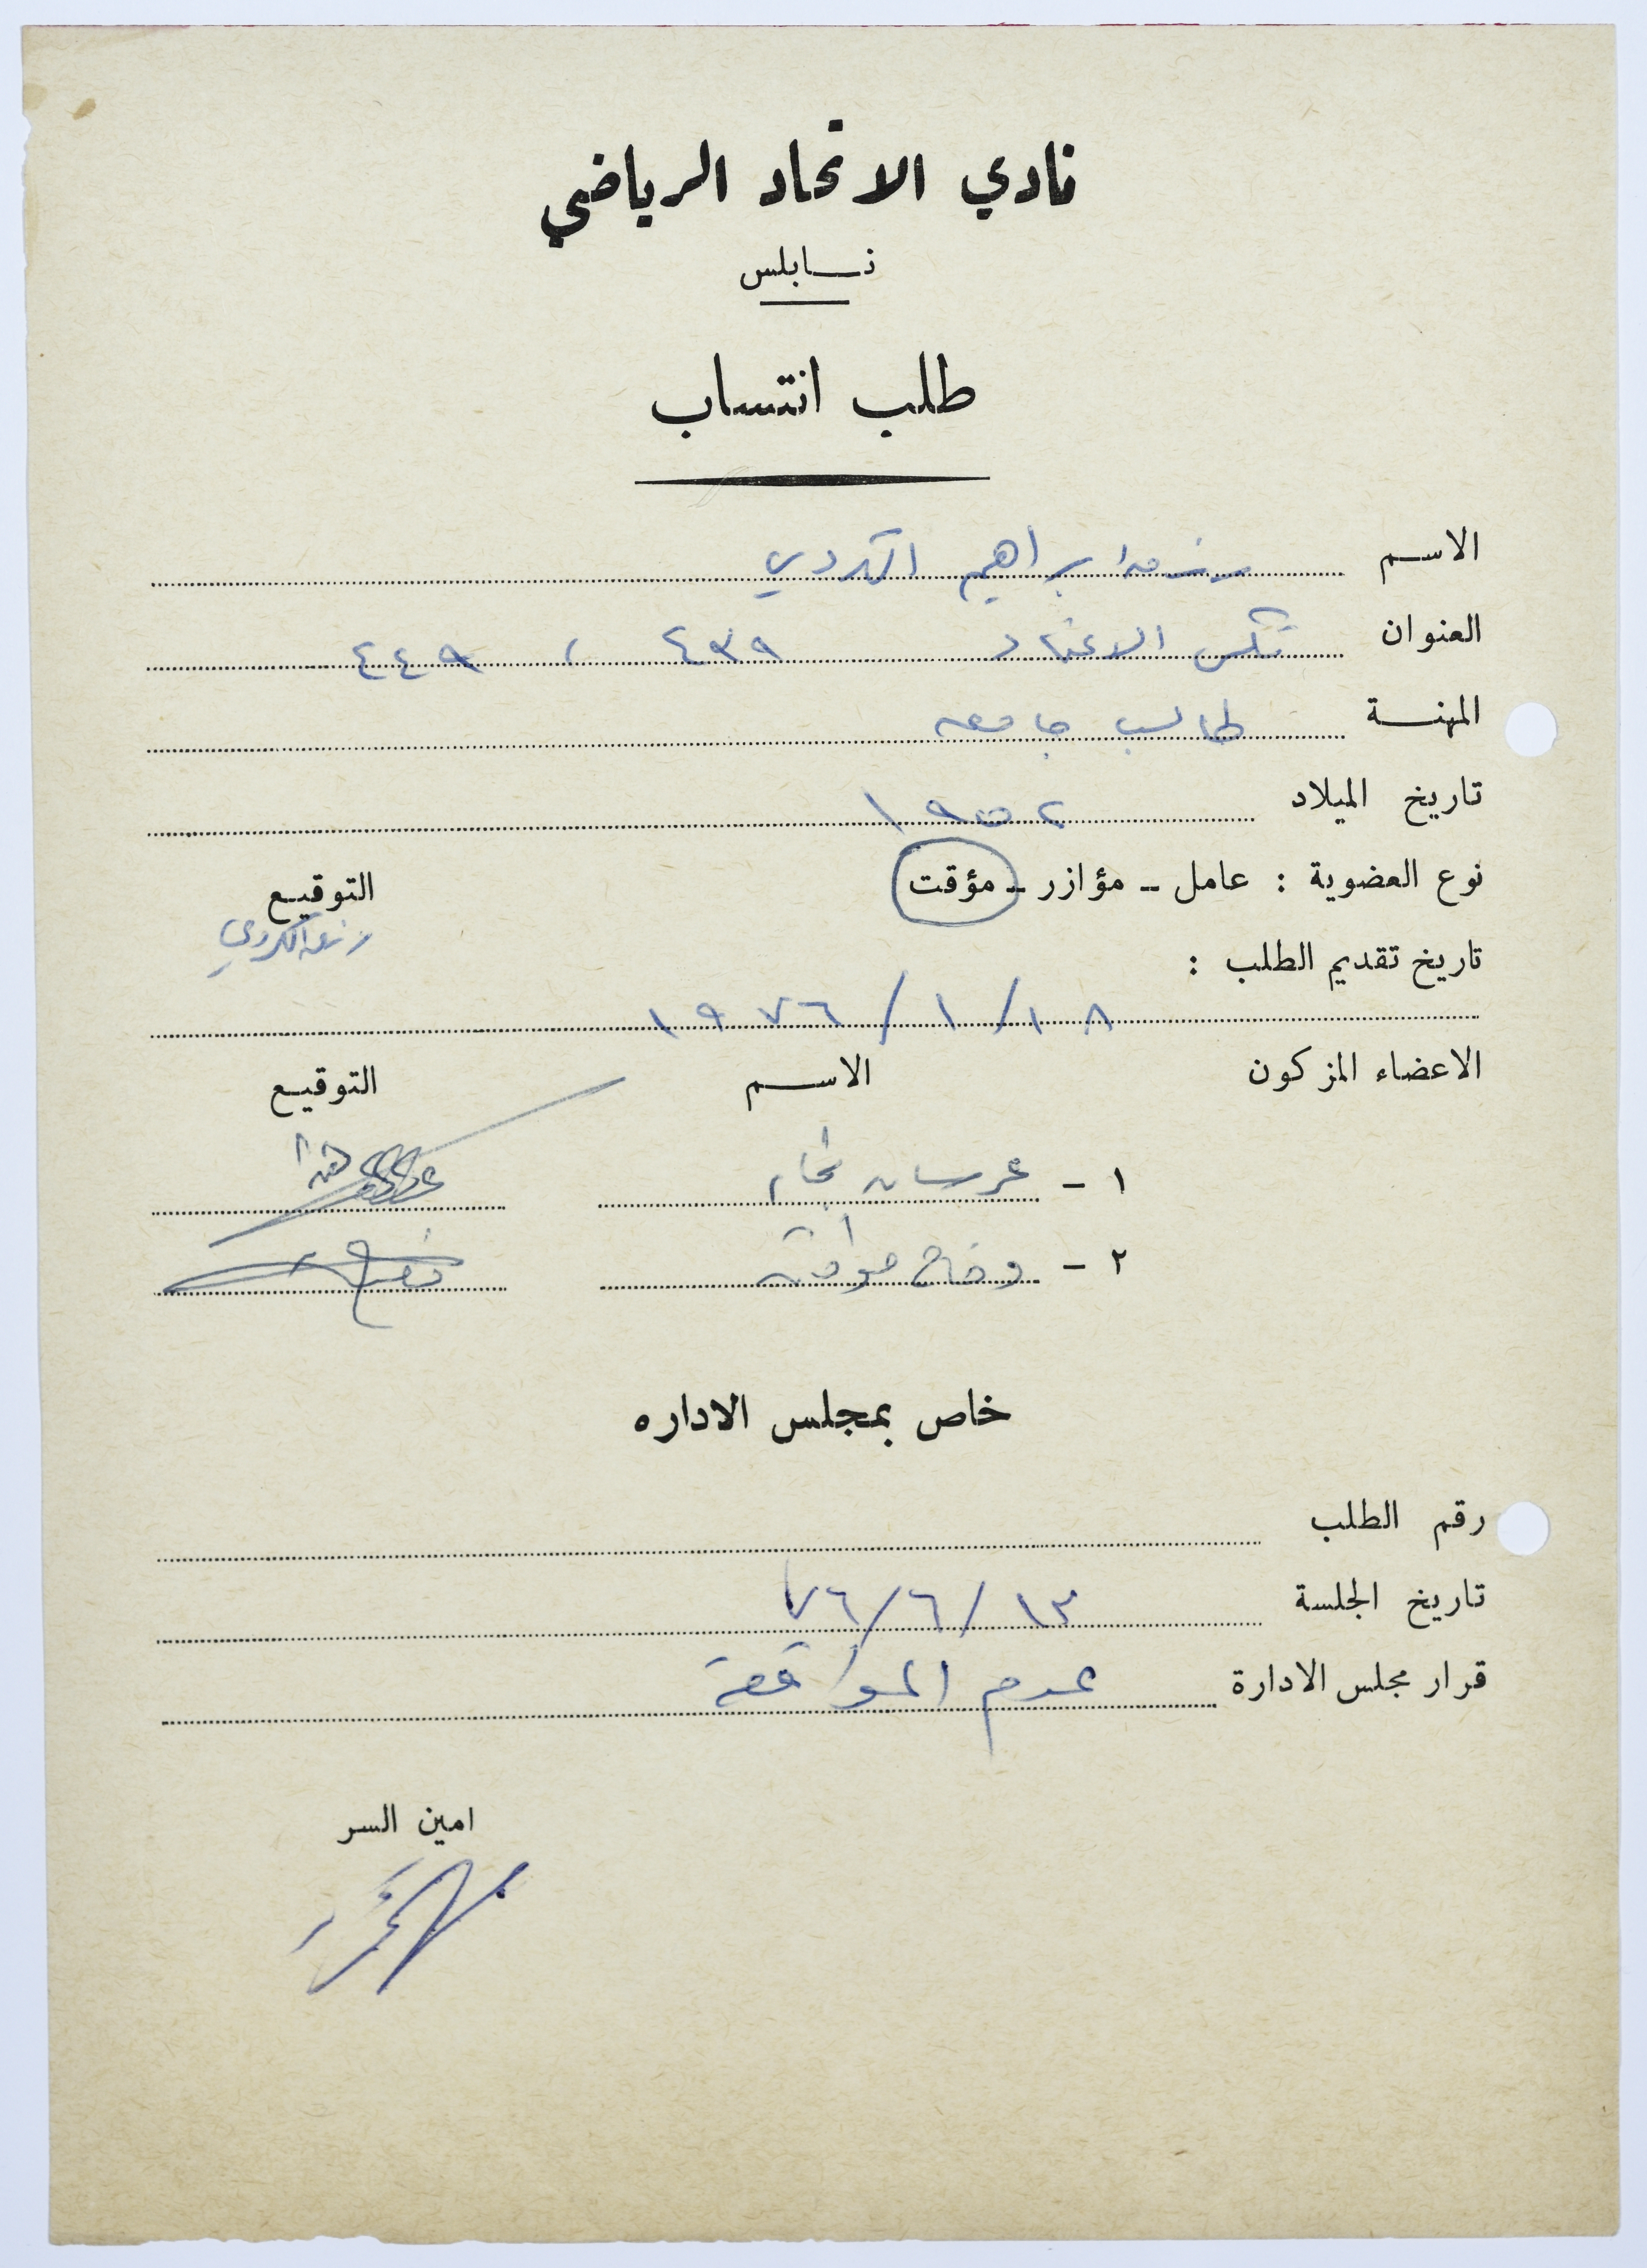 نادي الاتحاد الرياضي
نابلس
طلب انتساب
الاسم ابراهيم الكردي
العنوان تكسي الاعتماد ٤٣٩ ، ٤٤٩
المهنة طالب جامعه
تاريخ الميلاد ١٩٥٢
نوع العضوية : عامل - مؤازر - مؤقت التوقيع
الكردي
تاريخ تقديم الطلب :
١٨/١/١٩٧٦
الاعضاء المزكون الاسم التوقيع
١ - عرسان
٢ -
خاص بمجلس الاداره
رقم الطلب
تاريخ الجلسة ١٣/٦/٧٦
قرار مجلس الادارة عدم الموافقة
امين السر